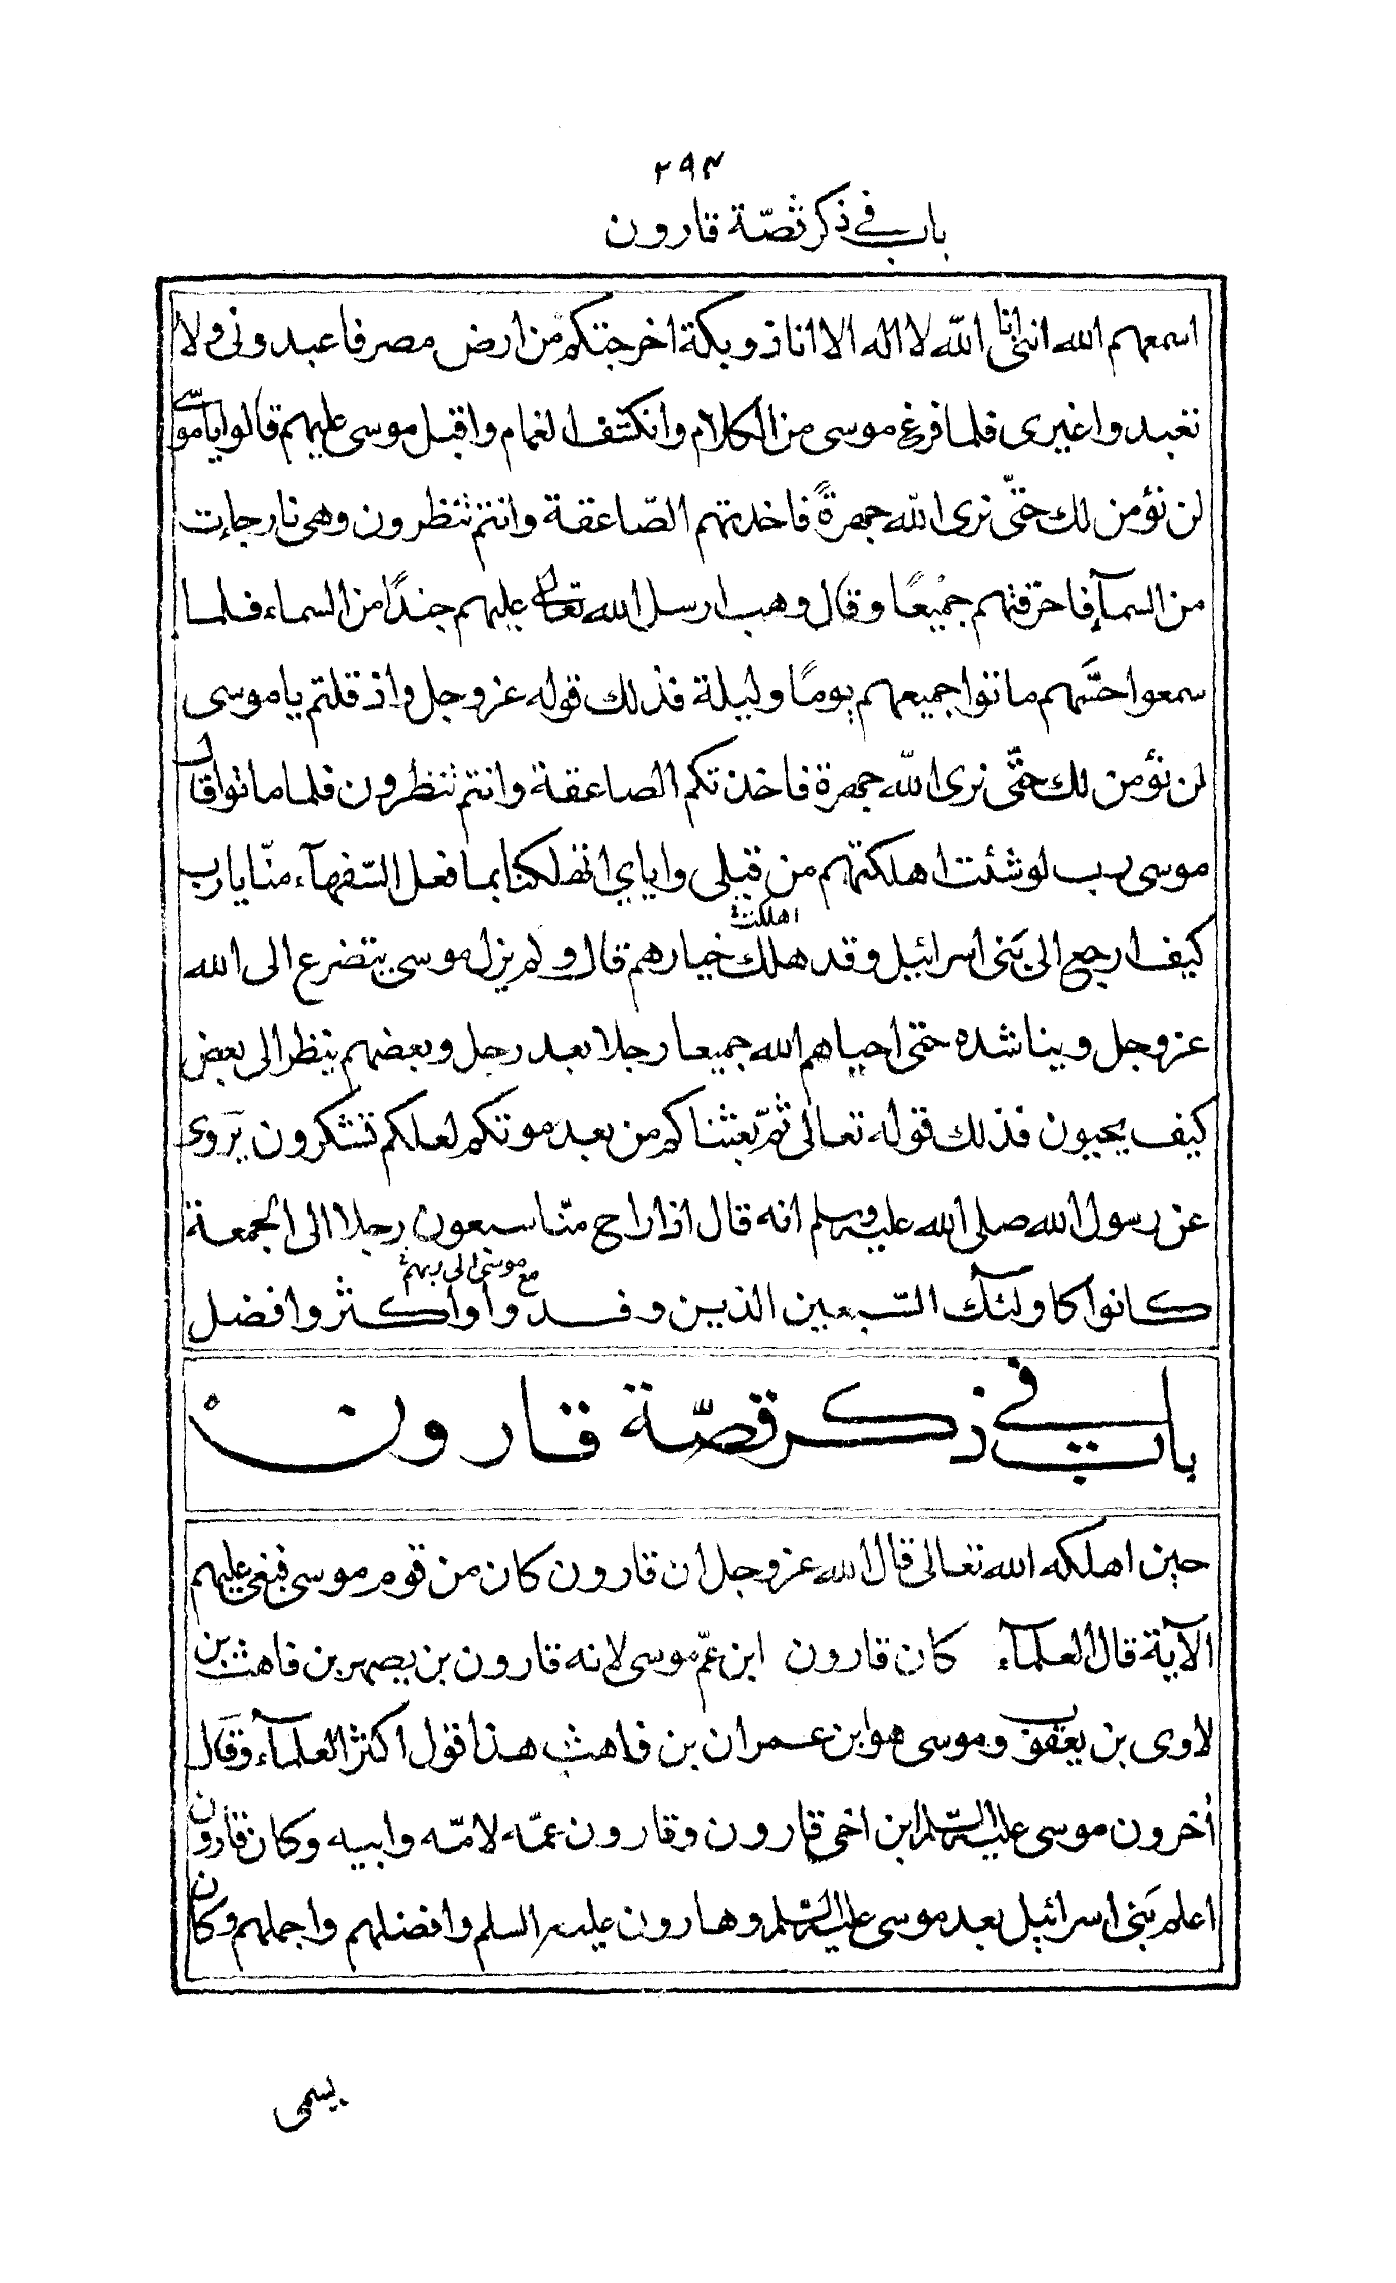 ٢٩٣
باب في ذكر قصّة قارون
اسمعهم الله اننى انا الله لا اله الا انا ذو بكة اخرجتكم من ارض مصر فاعبدونى ولا
تعبدوا غيرى فلما فرغ موسى من الكلام وانكشف الغمام واقبل موسى عليهم قالوا ياموسى
لن نؤمن لك حتّى نرى الله جهرةً فاخذتهم الصّاعقة وانتم تنظرون وهى نار جاءت
من السمآء فاحرقتهم جميعًا وقال وهب ارسل الله تعالى عليهم جندًا من السماء فلما
سمعوا حسّهم ماتوا جميعهم يومًا وليلة فذلك قوله عز وجل واذ قلتم ياموسى
لن نؤمن لك حتّى نرى الله جهرة فاخذتكم الصاعقة وانتم تنظرون فلما ماتوا قال
موسى رب لو شئت اهلكتهم من قبلى واياي اتهلكنا بما فعل السّفهآء منّا يارب
كيف ارجع الى بَنى اسرائيل وقد هلك خيارهم قال ولم يزل موسى يتضرع الى الله
اهلكت
عز وجل ويناشده حتى احياهم الله جميعا رجلا بعد رجل وبعضهم ينظر الى بعض
كيف يحيون فذلك قوله تعالى ثمّ بعثناكم من بعد موتكم لعلكم تشكرون يَروى
عن رسول الله صلى الله عليه وسلم انه قال اذا راح منّا سبعون رجلا الى الجمعة
كانوا كاولئك السّبعين الذين وفدوا مع موسى الى ربهم او اكثر وافضل
باب في ذكر قصّة قارون
حين اهلكه الله تعالى قال الله عز وجل ان قارون كان من قوم موسى فبغى عليهم
الآية قال العلمآء كان قارون ابن عمّ موسى لانه قارون بن يصهر بن فاهث بن
لاوى بن يعقوب وموسى هو ابن عمران بن فاهث هذا قول اكثر العلمآء وقال
أخرون موسى عليه السّلم ابن اخى قارون وقارون عمّه لامّه وابيه وكان قارون
اعلم بَنى اسرائيل بعد موسى عليه السّلم وهارون عليه السلم وافضلهم واجملهم وكان
يسمى